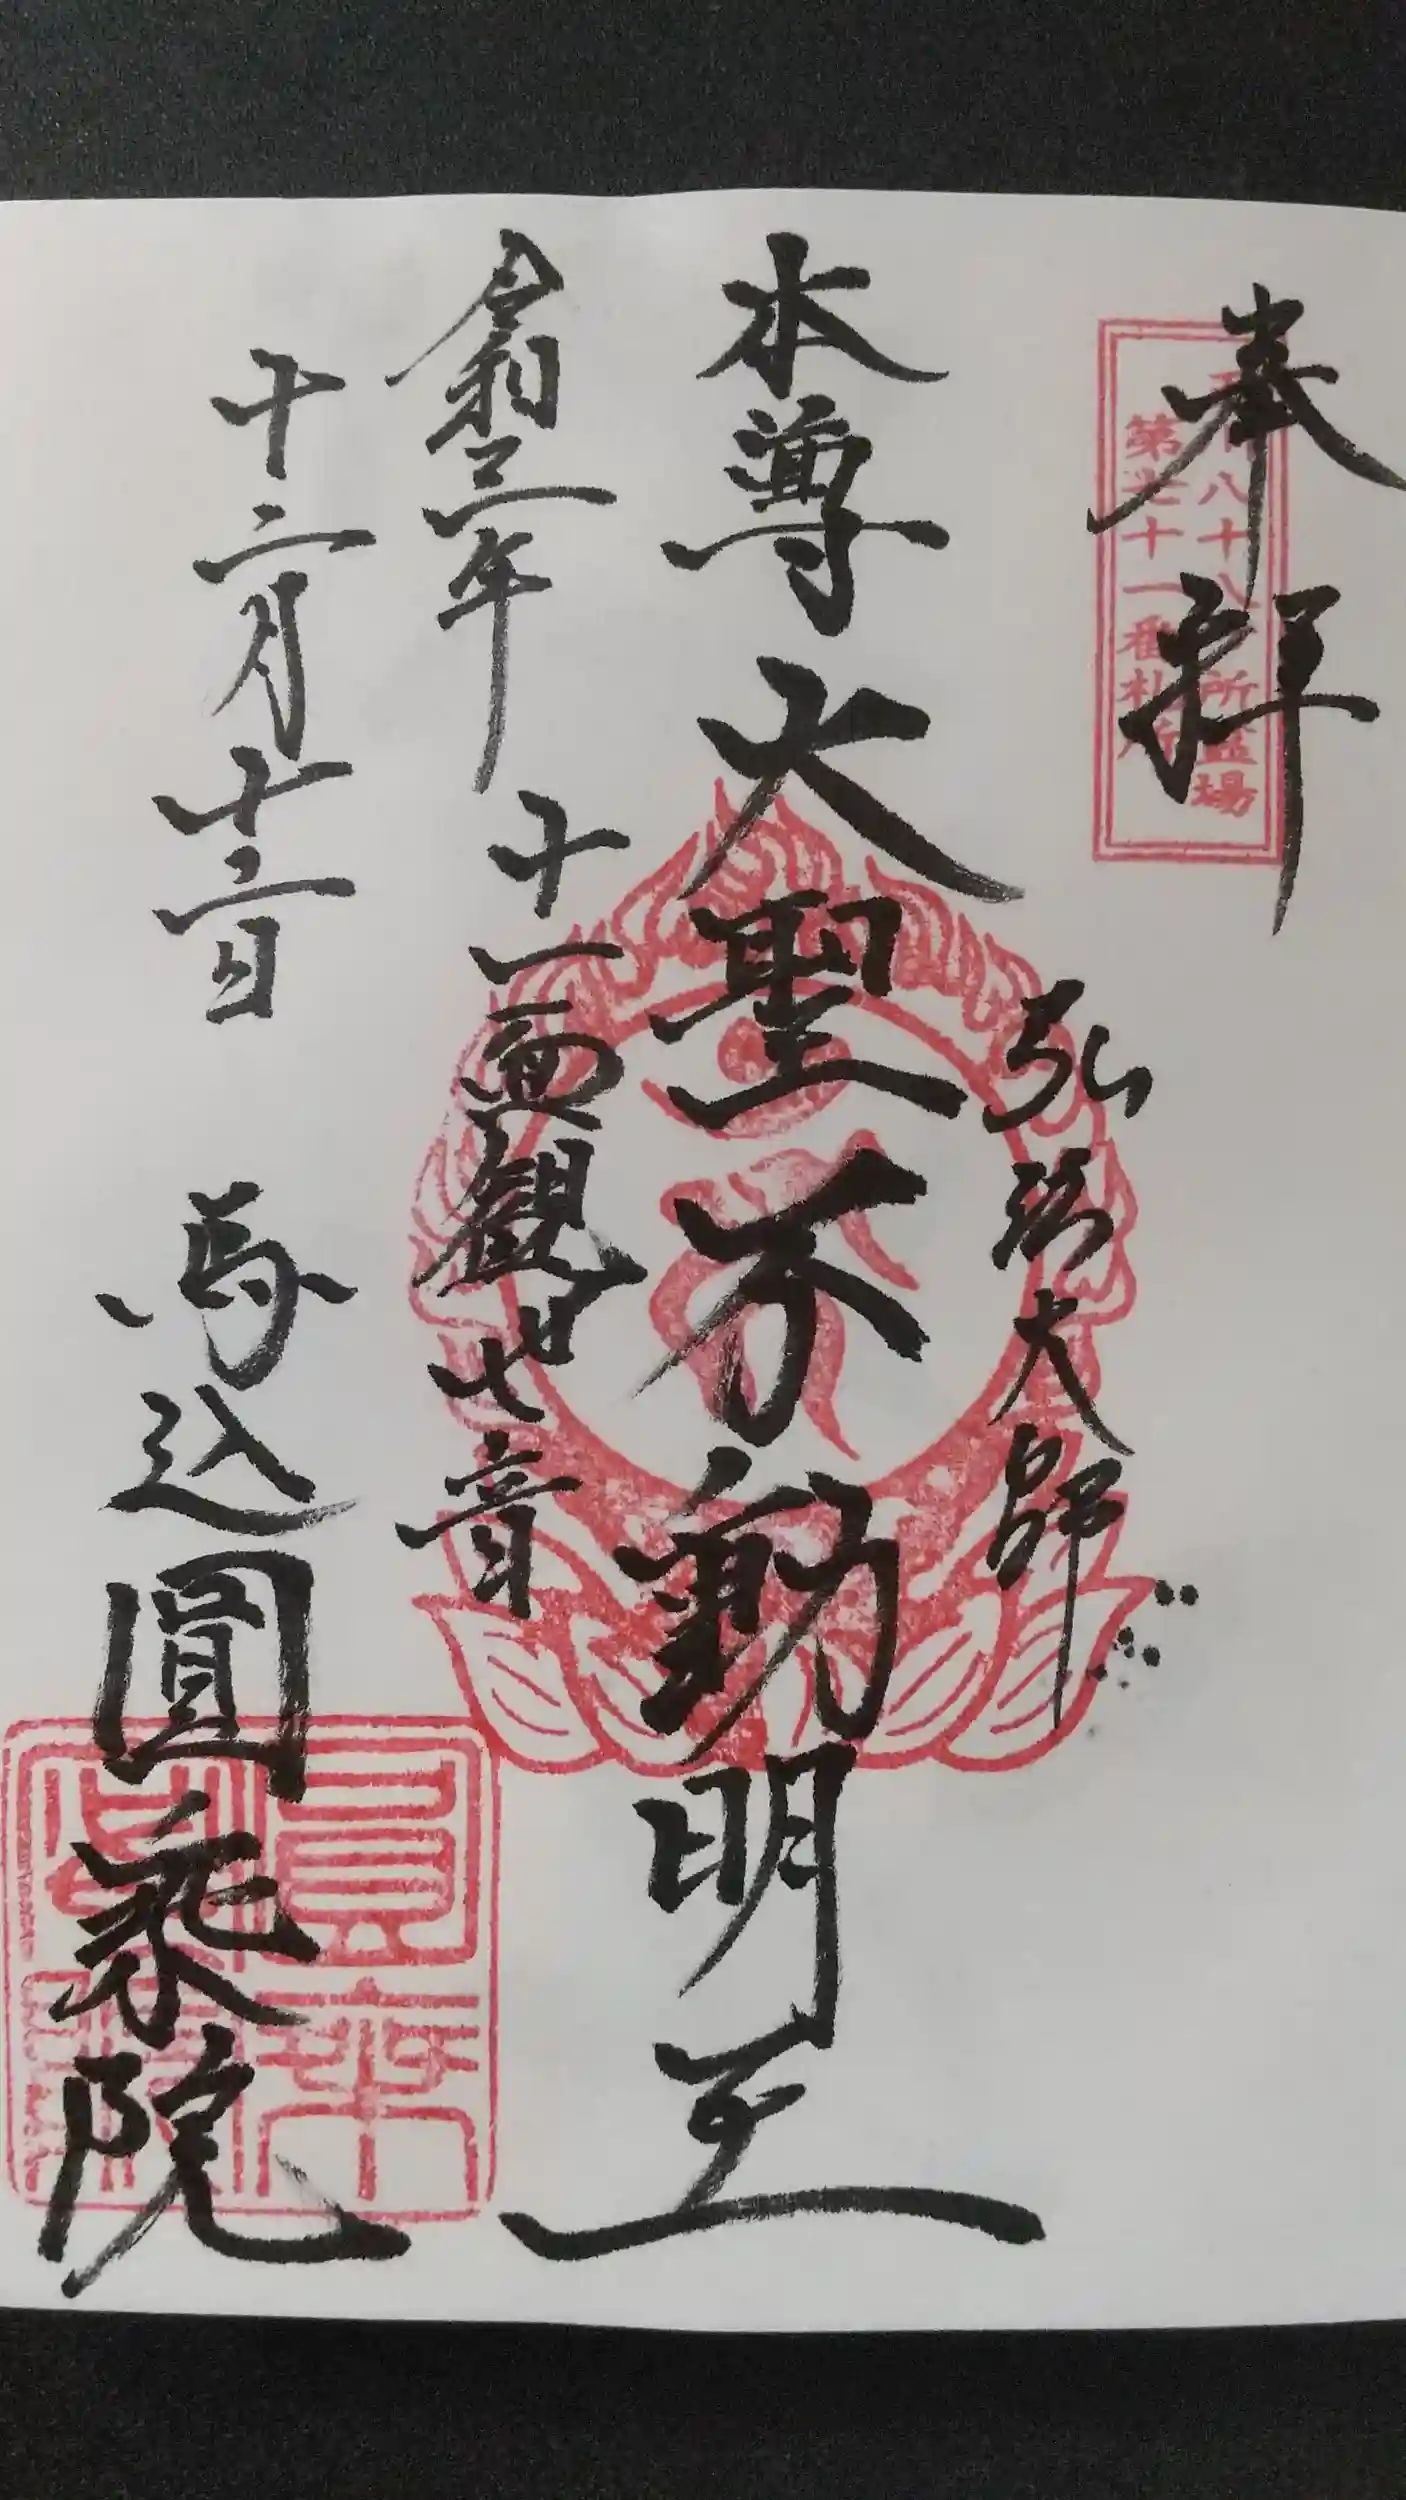 奉拝
八十八所霊場
第七十一番札所
弘法大師
本尊大聖不動明王
十一面観世音
令和三年
十二月十二日
馬込圓乗院